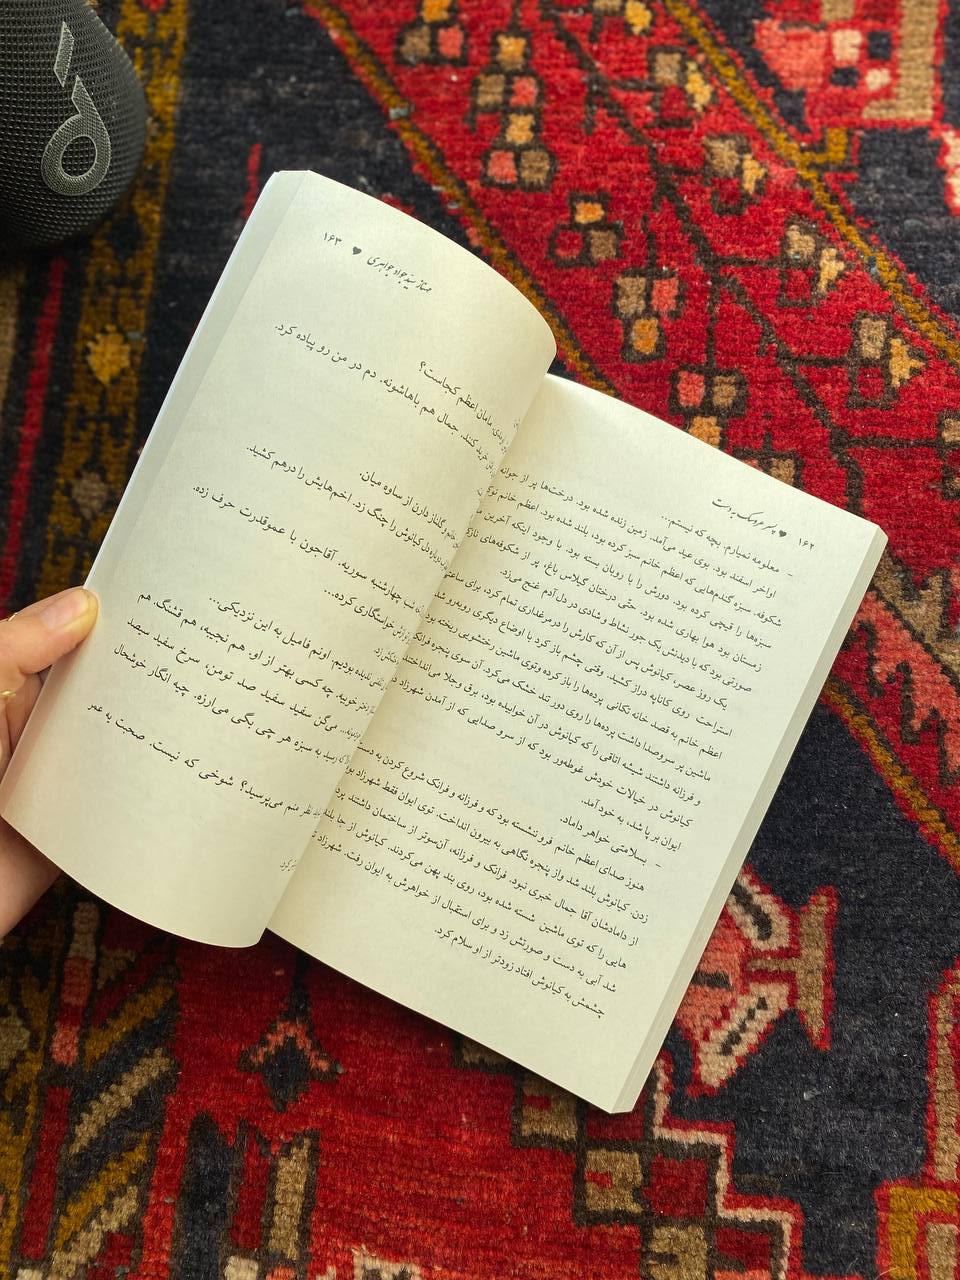 ۱۶۲ ♥ پسر عروسک به دست
- معلومه نمیارم. بچه که نیستم...
اواخر اسفند بود. بوی عید می‌آمد. زمین زنده شده بود. درخت‌ها پر از جوانه
شکوفه. سبزه گندم‌هایی که اعظم خانم سبز کرده بود، بلند شده بود. اعظم خانم
سبزه‌ها را قیچی کرده بود. دورش را با روبان بسته بود. با وجود اینکه آخرین
زمستان بود هوا بهاری شده بود. حتّی درختان گیلاس باغ، پر از شکوفه‌های
صورتی بود که با دیدنش یک جور نشاط و شادی در دل آدم غنج می‌زد.
یک روز عصر، کیانوش پس از آن که کارش را در مرغداری تمام کرد، برای ساعتی
استراحت روی کاناپه دراز کشید. وقتی چشم باز کرد با اوضاع دیگری روبه‌رو شد
اعظم خانم به قصد خانه تکانی پرده‌ها را باز کرده و توی ماشین رختشویی ریخته بود
ماشین پر سروصدا داشت پرده‌ها را روی دور تند خشک می‌کرد. آن سوی پنجره فرانک
و فرزانه داشتند شیشه اتاقی را که کیانوش در آن خوابیده بود، برق و جلا می‌انداختند
کیانوش در خیالات خودش غوطه‌ور بود که از سرو صدایی که از آمدن شهرزاد
ایوان بر پا شد، به خود آمد.
- بسلامتی خواهر داماد.
هنوز صدای اعظم خانم فرو ننشسته بود که و فرزانه و فرانک شروع کردن به دست
زدن. کیانوش بلند شد و از پنجره نگاهی به بیرون انداخت. توی ایوان فقط شهرزاد بود
از دامادشان آقا جمال خبری نبود. فرانک و فرزانه، آن‌سوتر از ساختمان داشتند
هایی را که توی ماشین شسته شده بود، روی بند پهن می‌کردند. کیانوش از جا بلند
شد آبی به دست و صورتش زد و برای استقبال از خواهرش به ایوان رفت. شهرزاد
چشمش به کیانوش افتاد زودتر از او سلام کرد.
♥ ۱۶۳
مامان اعظم کجاست؟
خرید کنند. جمال هم باهاشونه. دم در من رو پیاده کرد.
خانم و گلناز دارن از ساوه میان.
دوباره دل کیانوش را چنگ زد. اخم‌هایش را درهم کشید.
شب چهارشنبه سوریه. آقاجون با عموقدرت حرف زده.
خواستگاری کرده...
ندیده بودیم. اونم فامیل به این نزدیکی...
خوبیه. چه کسی بهتر از او. هم نجیبه، هم قشنگ. هم
می‌گن سفید سفید صد تومن، سرخ سفید سیصد
رسید به سبزه هر چی بگی می‌ارزه. چیه انگار خوشحال
نظر منم می‌پرسید؟ شوخی که نیست. صحبت یه عمر